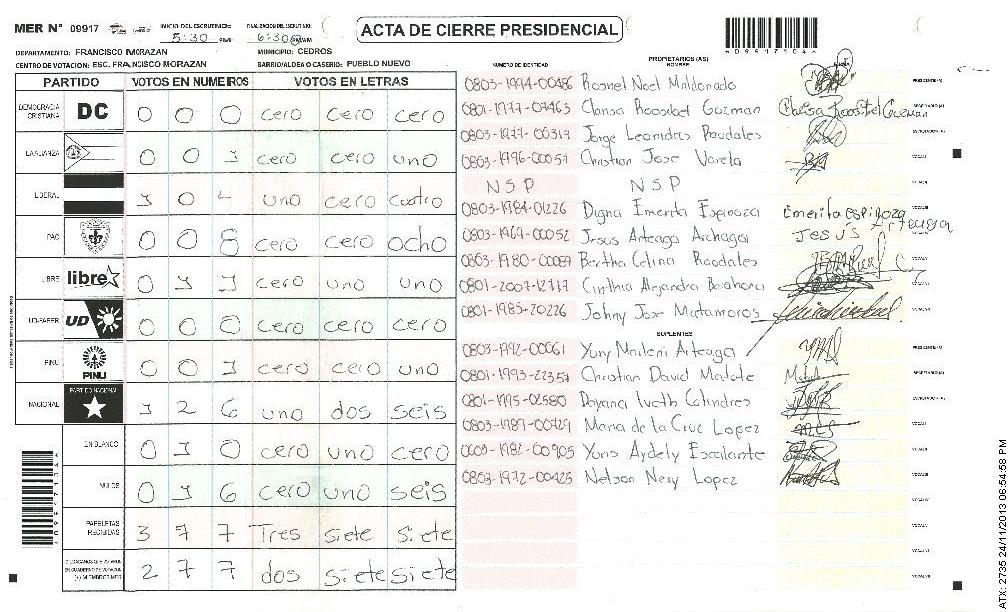 MER N° 09917
INICIO DEL ESCRUTINIO: 5:30
FINALIZACION DEL ESCRUTINIO: 6:30
ACTA DE CIERRE PRESIDENCIAL
DEPARTAMENTO: FRANCISCO MORAZAN
MUNICIPIO: CEDROS
CENTRO DE VOTACION: ESC. FRANCISCO MORAZAN
BARRIO/ALDEA O CASERIO: PUEBLO NUEVO
PARTIDO VOTOS EN NUMEROS VOTOS EN LETRAS
DEMOCRACIA CRISTIANA DC 0 0 0 cero cero cero
LA ALIANZA 0 0 1 cero cero uno
LIBERAL 1 0 4 uno cero cuatro
PAC 0 0 8 cero cero ocho
LIBRE libre 0 1 1 cero uno uno
UD-FAPER UD 0 0 0 cero cero cero
PINU PINU 0 0 1 cero cero uno
NACIONAL PARTIDO NACIONAL 1 2 6 uno dos seis
EN BLANCO 0 1 0 cero uno cero
NULOS 0 1 6 cero uno seis
PAPELETAS RECIBIDAS 3 7 7 Tres siete siete
CIUDADANOS QUE VOTARON EN CUADERNO DE VOTACION (+) MIEMBROS MER 2 7 7 dos siete siete
NUMERO DE IDENTIDAD
PROPIETARIOS (AS)
NOMBRE
0803-1994-00486 Rosnel Noel Maldonado PRESIDENTE (A)
0801-1977-07463 Clarisa Roosibel Guzman SECRETARIO (A)
0803-1977-00319 Jorge Leandro Raudales ESCRUTADOR (A)
0803-1996-00057 Christian Jose Varela VOCAL I
NSP NSP VOCAL II
0803-1984-01226 Digna Emerita Espinoza Emerita Espinoza VOCAL III
0803-1969-00052 Jesus Arteaga Archaga Jesús Arteaga
0803-1980-00089 Bertha Celina Raudales
0801-2007-12717 Cinthia Alejandra Barahona
0801-1985-20226 Johny Jose Matamoros
SUPLENTES
0803-1992-00061 Yury Marleni Arteaga PRESIDENTE (A)
0801-1993-22357 Christian David Matute SECRETARIO (A)
0801-1995-02580 Dayana Iveth Colindres ESCRUTADOR (A)
0803-1989-00429 Maria de la Cruz Lopez VOCAL I
Yuris Aydely Escalante VOCAL II
0803-1972-00425 Nelson Nery Lopez VOCAL III
ATX: 2735 24/11/2013 06:54:58 PM